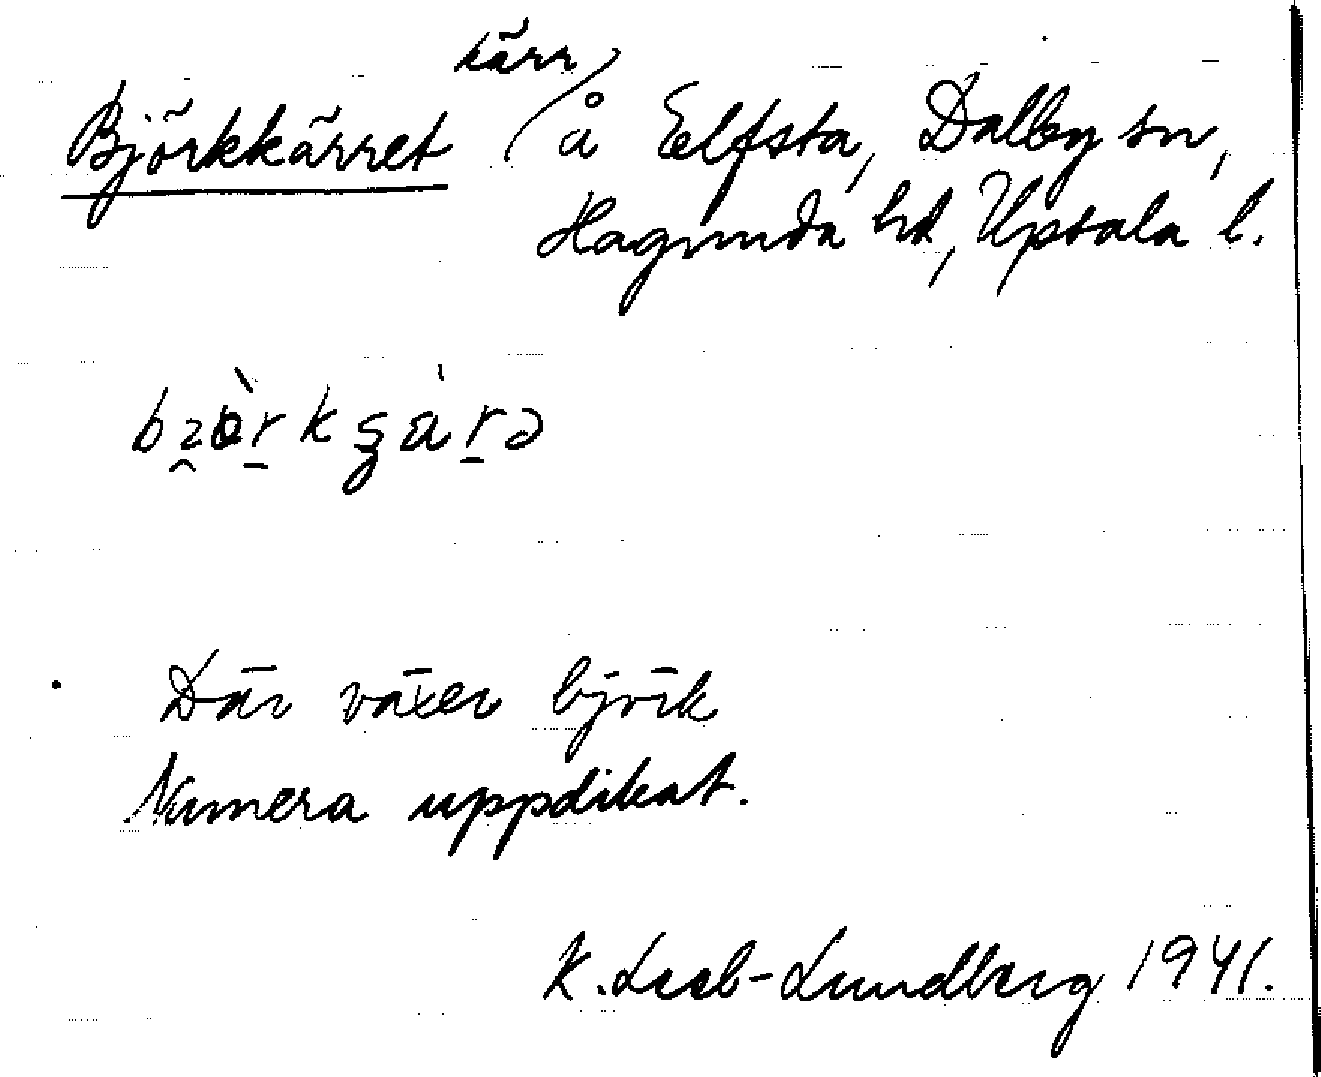 Björkkärret kärr å Elfsta, Dalby sn,
Hagunda hd, Upsala l.
Där växer björk
Numera uppdikat.
K. Leeb-Lundberg 1941.